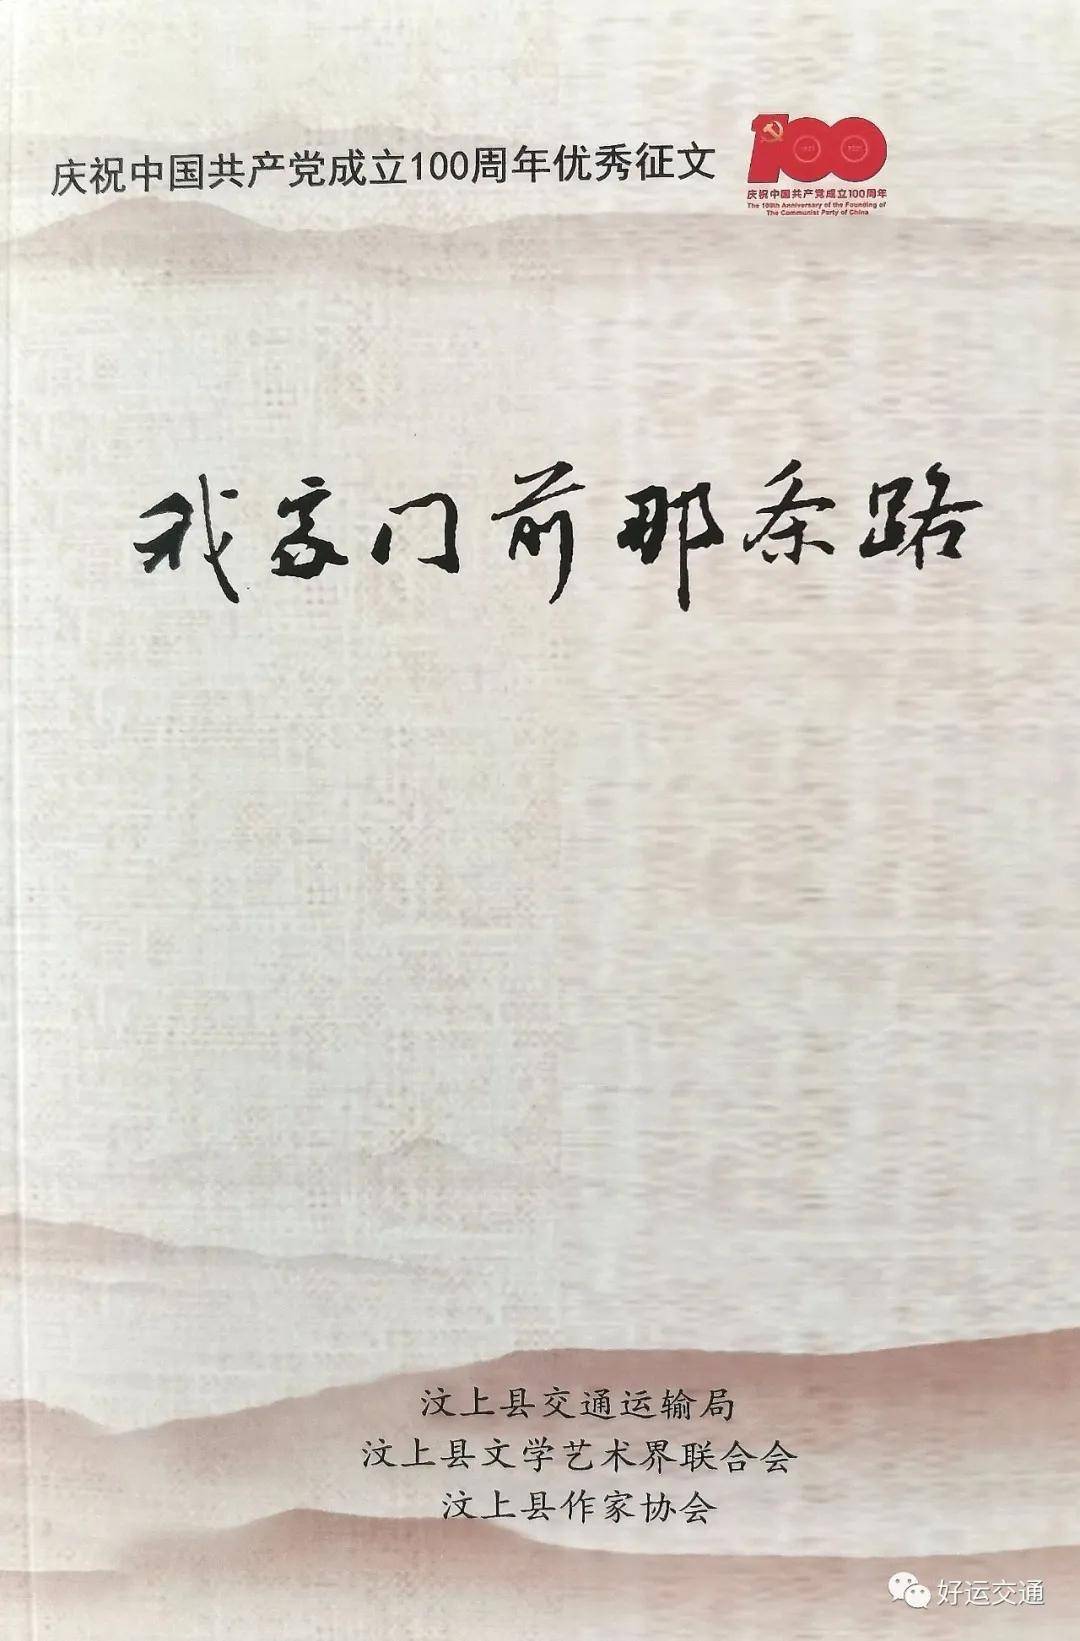 庆祝中国共产党成立100周年优秀征文
庆祝中国共产党成立100周年
The 100th Anniversary of the Founding of
The Communist Party of China
我家门前那条路
汶上县交通运输局
汶上县文学艺术界联合会
汶上县作家协会
好运交通